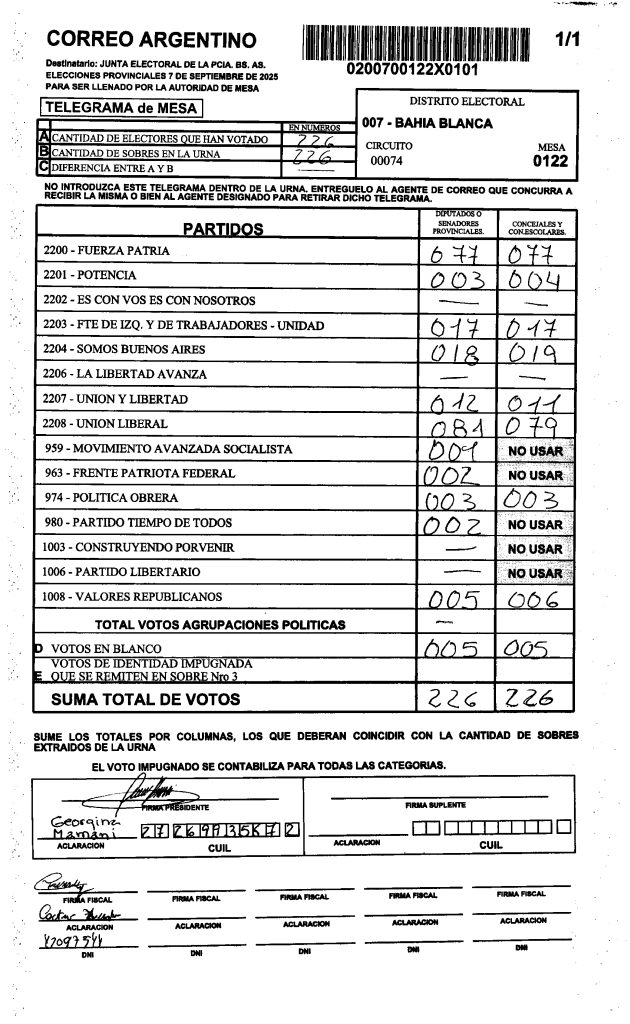 CORREO ARGENTINO
Destinatario: JUNTA ELECTORAL DE LA PCIA. BS. AS.
ELECCIONES PROVINCIALES 7 DE SEPTIEMBRE DE 2025
PARA SER LLENADO POR LA AUTORIDAD DE MESA
0200700122X0101
1/1
TELEGRAMA de MESA
EN NUMEROS
A CANTIDAD DE ELECTORES QUE HAN VOTADO 226
B CANTIDAD DE SOBRES EN LA URNA 226
C DIFERENCIA ENTRE A Y B —
DISTRITO ELECTORAL
007 - BAHIA BLANCA
CIRCUITO MESA
00074 0122
NO INTRODUZCA ESTE TELEGRAMA DENTRO DE LA URNA. ENTREGUELO AL AGENTE DE CORREO QUE CONCURRA A
RECIBIR LA MISMA O BIEN AL AGENTE DESIGNADO PARA RETIRAR DICHO TELEGRAMA.
PARTIDOS
DIPUTADOS O SENADORES PROVINCIALES.
CONCEJALES Y CON.ESCOLARES.
2200 - FUERZA PATRIA 077 077
2201 - POTENCIA 003 004
2202 - ES CON VOS ES CON NOSOTROS — —
2203 - FTE DE IZQ. Y DE TRABAJADORES - UNIDAD 017 017
2204 - SOMOS BUENOS AIRES 018 019
2206 - LA LIBERTAD AVANZA — —
2207 - UNION Y LIBERTAD 012 011
2208 - UNION LIBERAL 081 079
959 - MOVIMIENTO AVANZADA SOCIALISTA 001 NO USAR
963 - FRENTE PATRIOTA FEDERAL 002 NO USAR
974 - POLITICA OBRERA 003 003
980 - PARTIDO TIEMPO DE TODOS 002 NO USAR
1003 - CONSTRUYENDO PORVENIR — NO USAR
1006 - PARTIDO LIBERTARIO — NO USAR
1008 - VALORES REPUBLICANOS 005 006
TOTAL VOTOS AGRUPACIONES POLITICAS —
D VOTOS EN BLANCO 005 005
VOTOS DE IDENTIDAD IMPUGNADA
E QUE SE REMITEN EN SOBRE Nro 3
SUMA TOTAL DE VOTOS 226 226
SUME LOS TOTALES POR COLUMNAS, LOS QUE DEBERAN COINCIDIR CON LA CANTIDAD DE SOBRES
EXTRAIDOS DE LA URNA
EL VOTO IMPUGNADO SE CONTABILIZA PARA TODAS LAS CATEGORIAS.
FIRMA PRESIDENTE FIRMA SUPLENTE
Georgina
Mamani
ACLARACION CUIL ACLARACION CUIL
FIRMA FISCAL FIRMA FISCAL FIRMA FISCAL FIRMA FISCAL FIRMA FISCAL
ACLARACION ACLARACION ACLARACION ACLARACION ACLARACION
DNI DNI DNI DNI DNI